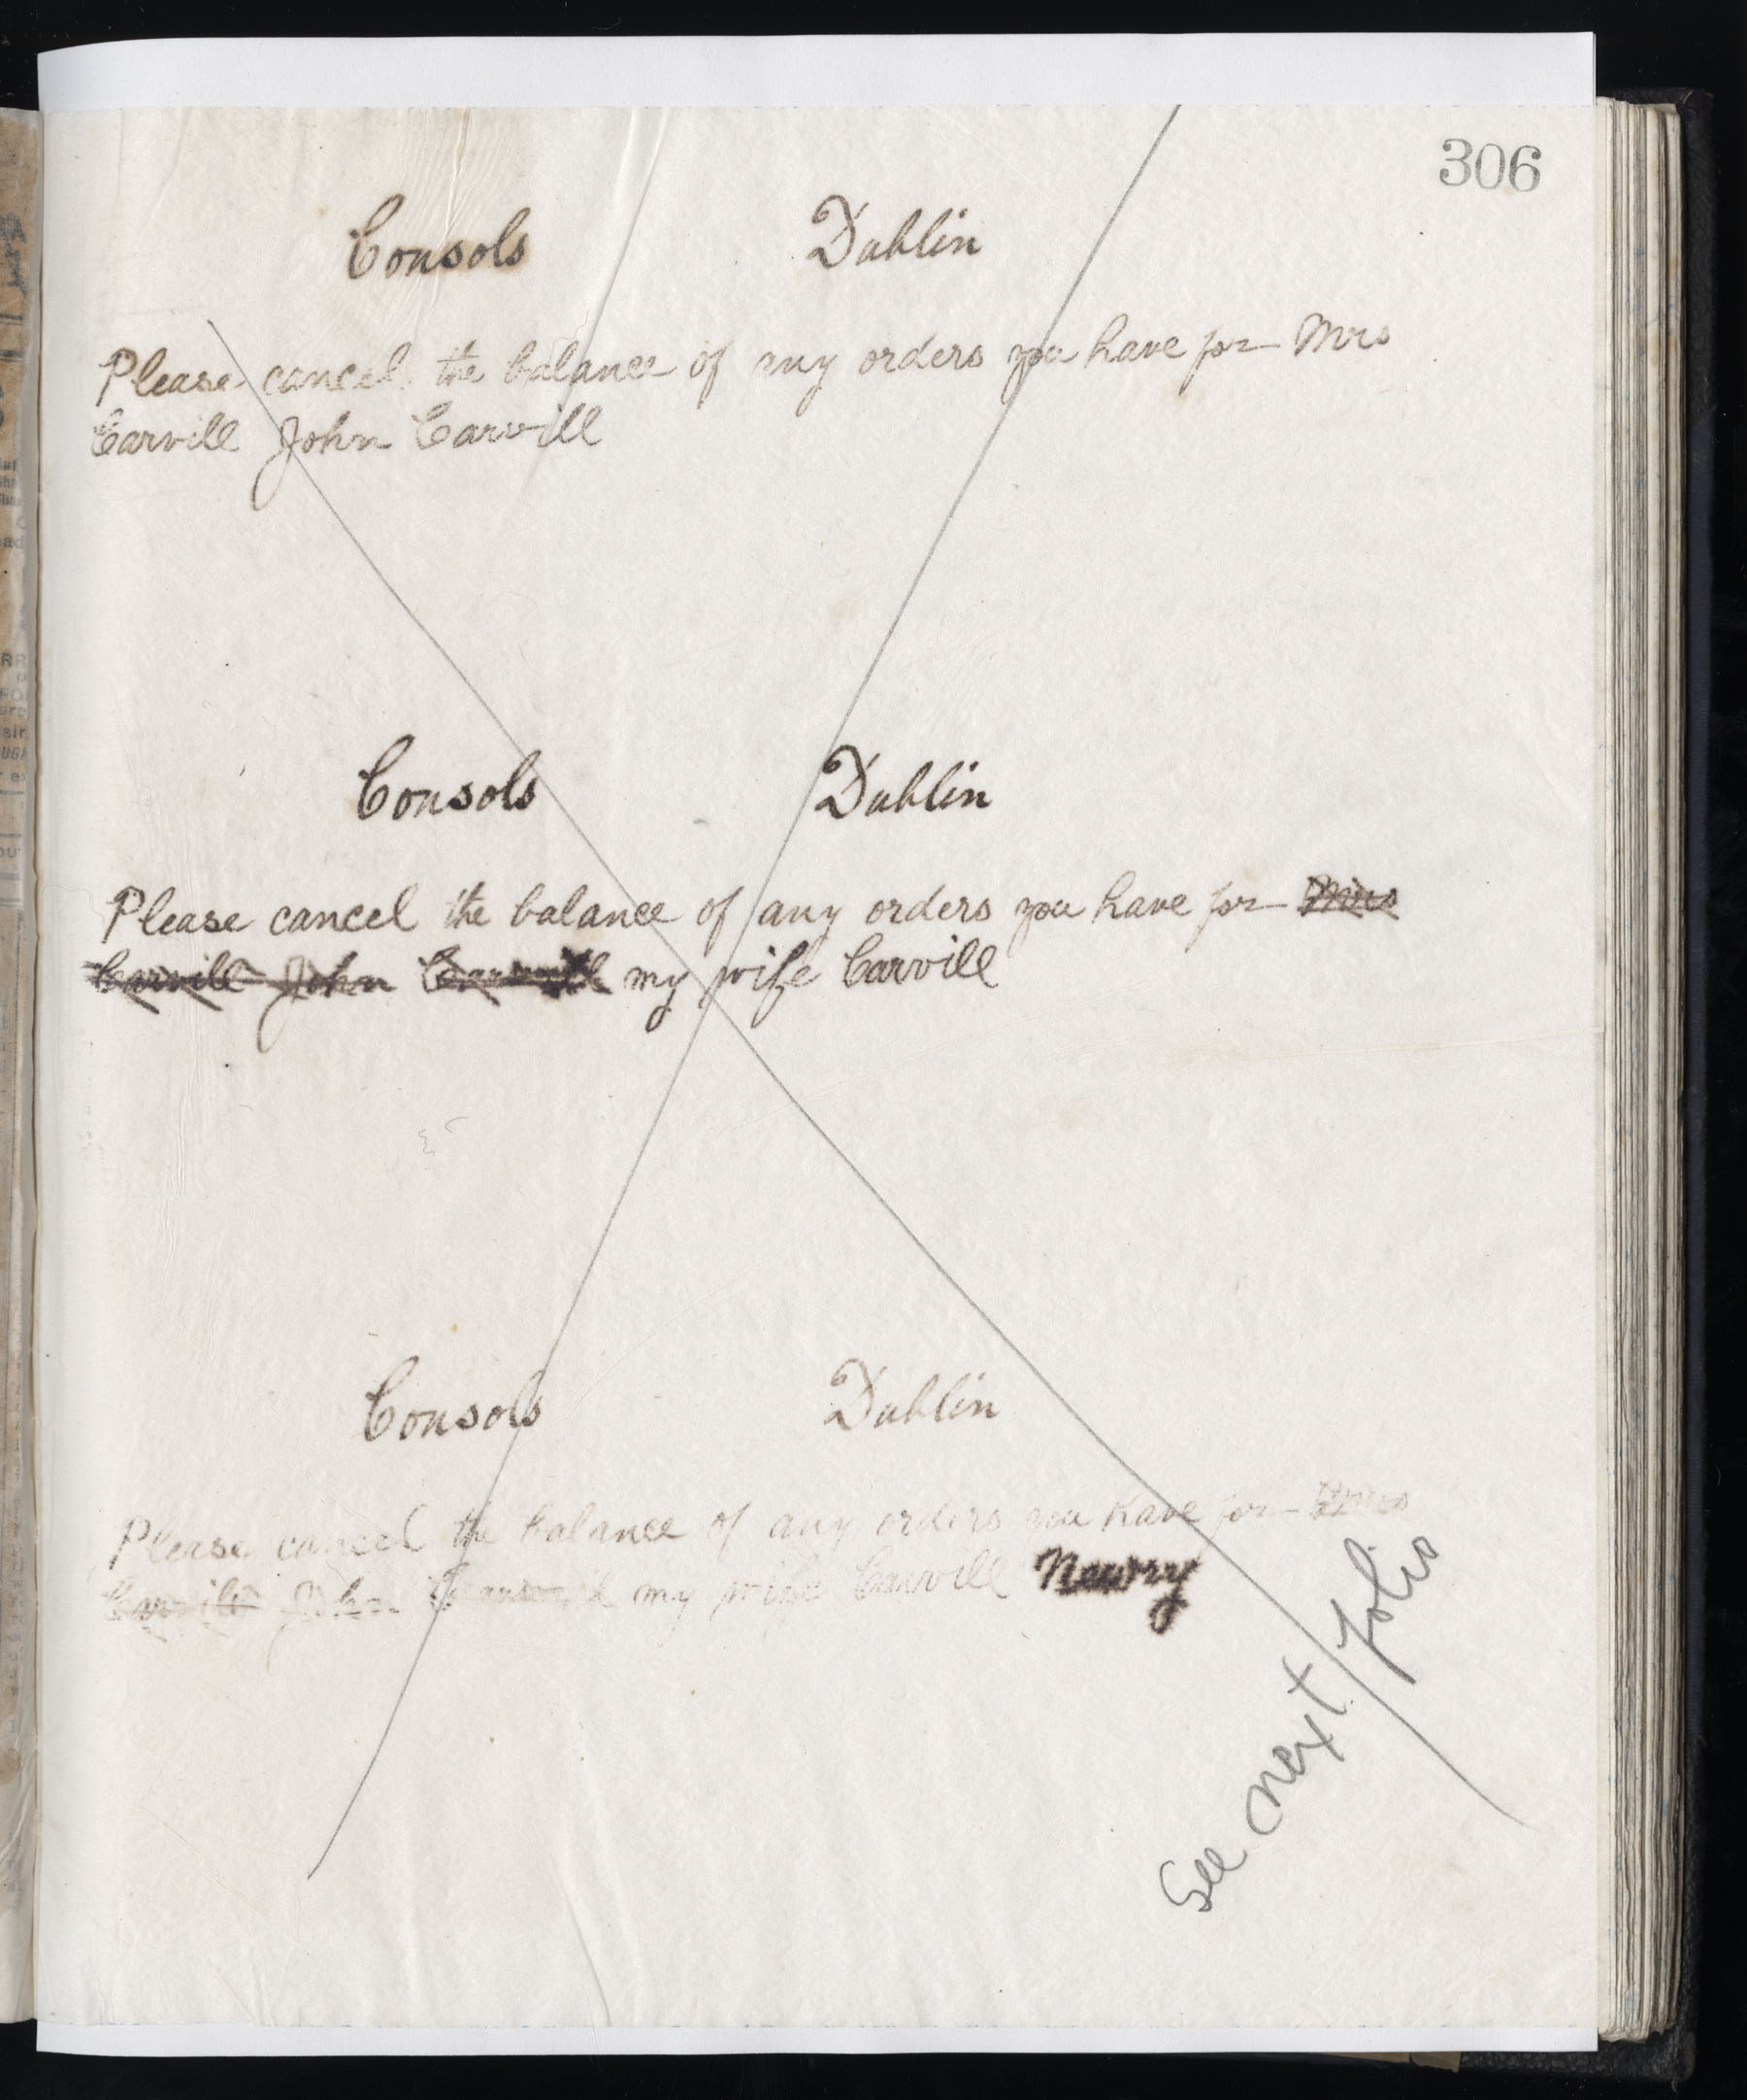 306
Consols Dublin
Please cancel the balance of any orders you have for Mrs
Carvill John Carvill
Consols Dublin
Please cancel the balance of any orders you have for Mrs
Carvill John Carvill my wife Carvill
Consols Dublin
Please cancel the balance of any orders you have for Mrs
Carvill John Carvill my wife Carvill Newry
See next folio